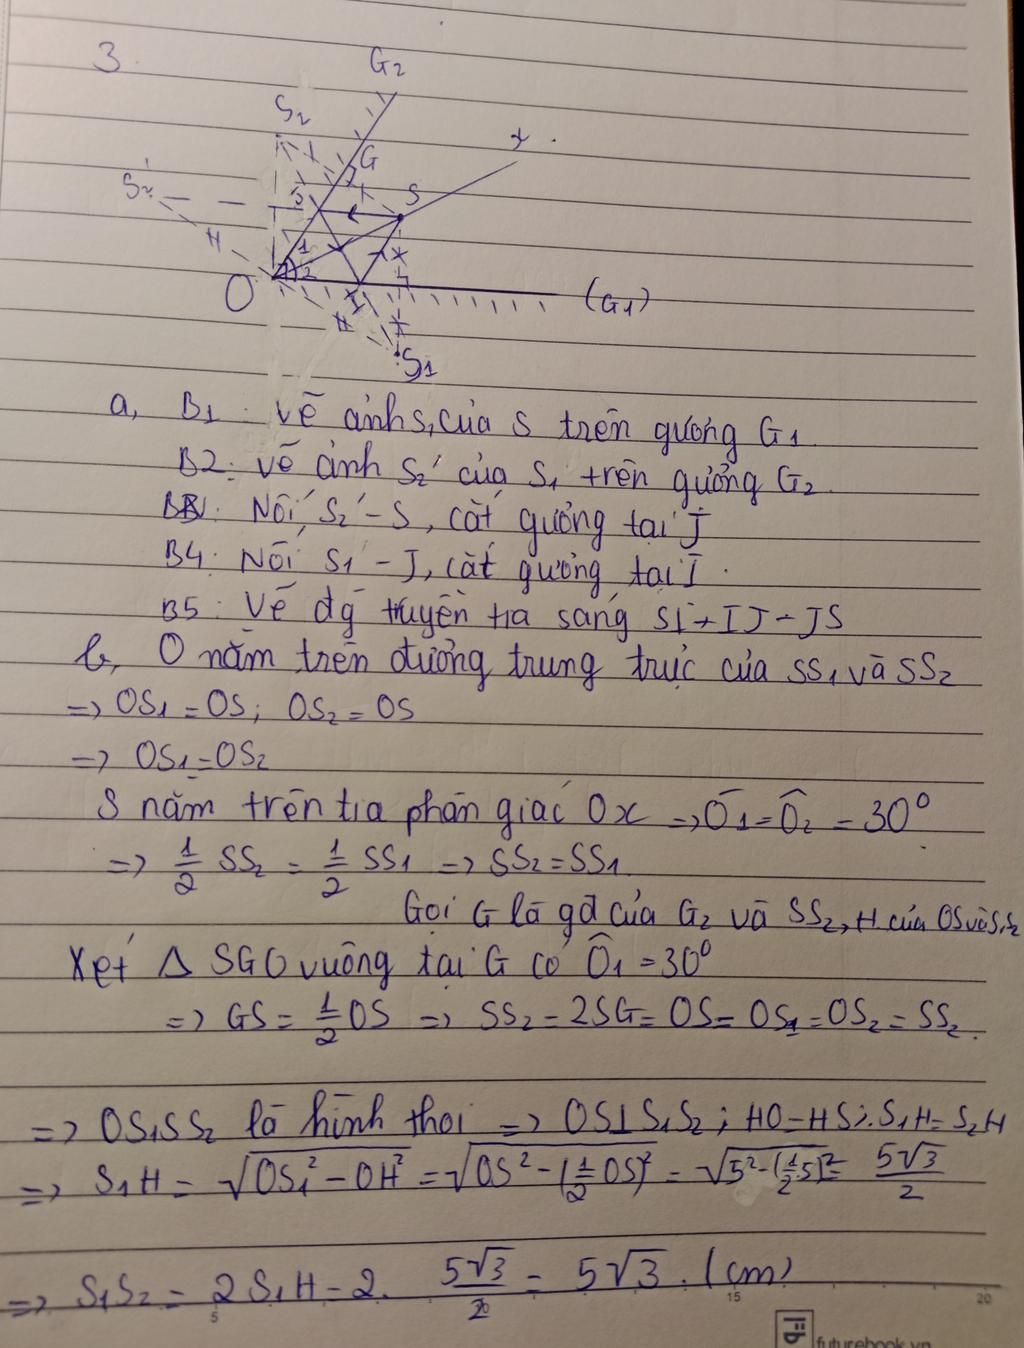 3.
G2
S2
x
G
S2'
J
S
1
2
O
I
(G1)
S1
a, B1: vẽ ảnh S1 của S trên gương G1
B2: vẽ ảnh S2' của S1 trên gương G2
B3: Nối S2' - S, cắt gương tại J
B4: Nối S1 - J, cắt gương tại I.
B5: Vẽ đg truyền tia sáng SI → IJ - JS
b, O nằm trên đường trung trực của SS1 và SS2
=> OS1 = OS; OS2 = OS
=> OS1 = OS2
S nằm trên tia phân giác Ox => Ô1 = Ô2 = 30⁰
=> 1/2 SS2 = 1/2 SS1 => SS2 = SS1
Gọi G là gđ của G2 và SS2, H của OS và S1S2
Xét Δ SGO vuông tại G có Ô1 = 30⁰
=> GS = 1/2 OS => SS2 = 2SG = OS = OS1 = OS2 = SS2.
=> OS1SS2 là hình thoi => OS⊥S1S2; HO = HS; S1H = S2H
=> S1H = √(OS1² - OH²) = √(OS² - (1/2 OS)²) = √(5² - (1/2.5)²) = 5√3/2
=> S1S2 = 2S1H = 2. 5√3/2 = 5√3. (cm)
5 15 20
futurebook.vn